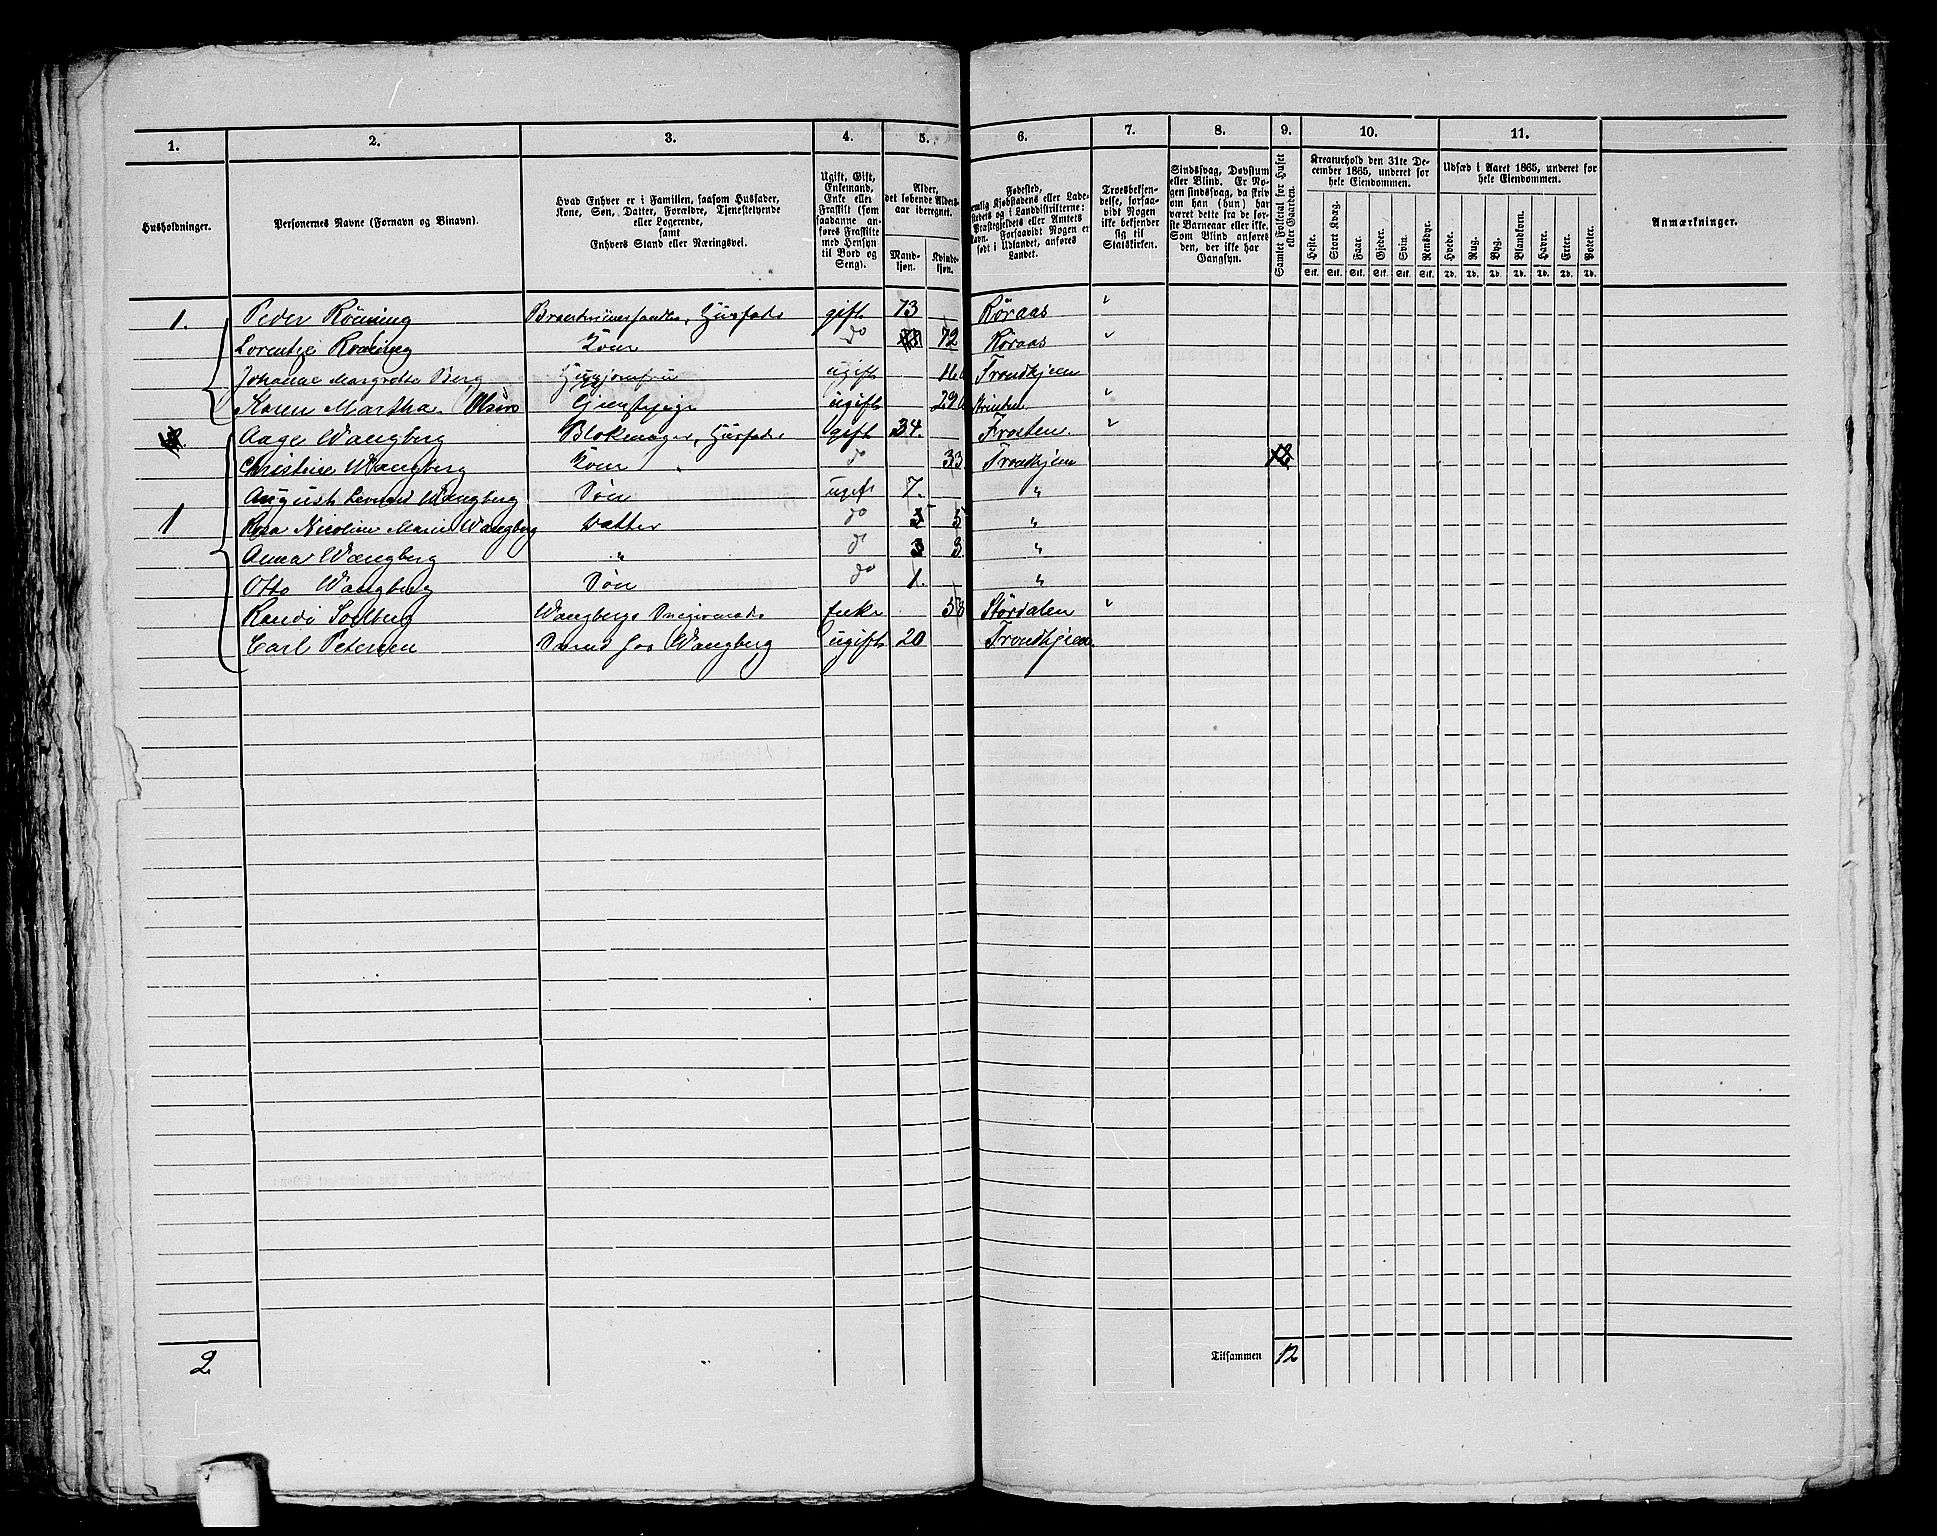 1. 2. 3. 4. 5. 6. 7. 8. 9. 10. 11.
Husholdninger.
Personernes Navne (Fornavn og Binavn).
Hvad Enhver er i Familien, saasom Husfader,
Kone, Søn, Datter, Forældre, Tjenestetyende
eller Logerende,
samt
Enhvers Stand eller Næringsvei.
Ugift, Gift,
Enkemand,
Enke eller
Fraskilt (som
saadanne an-
føres Fraskilte
med Hensyn
til Bord og
Seng).
Alder,
det løbende Alders-
aar iberegnet.
Mand-
kjøn.
Kvinde-
kjøn.
Fødested,
nemlig Kjøbstadens eller Lade-
stedets og i Landdistrikterne:
Præstegjeldets eller Amtets
Navn. Forsaavidt Nogen er
født i Udlandet, anføres
Landet.
Troesbekjen-
delse, forsaa-
vidt Nogen
ikke bekjender
sig til
Statskirken.
Sindssvag, Døvstum
eller Blind. Er No-
gen sindssvag, da skriv
om han (hun) har
været dette fra de før-
ste Barneaar eller ikke.
Som Blind anføres
den, der ikke har
Gangsyn.
Samlet Folketal for Huset
eller Gaarden.
Kreaturhold den 31te De-
cember 1865, underet for
hele Eiendommen.
Heste. Stort Kvæg. Faar. Gjeder. Svin. Rensdyr.
Stk. Stk. Stk. Stk. Stk. Stk.
Udsæd i Aaret 1865, underet for
hele Eiendommen.
Hvede. Rug. Byg. Blandkorn. Havre. Erter. Poteter.
Td. Td. Td. Td. Td. Td. Td.
Anmærkninger.
1. Peder Rönning Husfader gift 73 Röraas "
Lorentze Rönning Kone do 72 Röraas "
Johanne Margrethe Berg Husjomfru ugift Trondhjem
Karen Martha Olsen Tjenestepige ugift 29 Strinden "
Aage Wangberg Blokmager, Husfader gift 34. Frosten. "
Christine Wangberg Kone do 33 Trondhjem
August Wangberg Søn ugift 7. "
1 Rosa Nicoline Marie Wangberg Datter do 5 "
Anna Wangberg " do 3 "
Otto Wangberg Søn do 1. "
Randi Solberg Wangbergs Svigermoder Enke 58 Stördalen "
Carl Petersen Svend hos Wangberg ugift 20 Trondhjem
2 Tilsammen 12